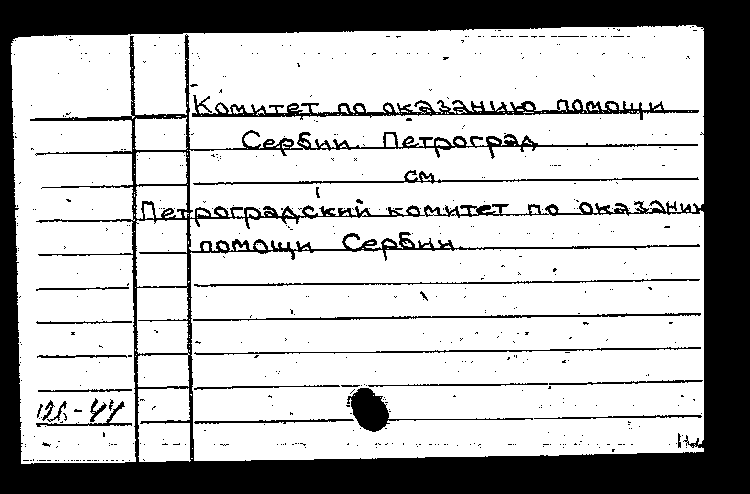 Комитет по оказанию помощи
Сербии. Петроград
см.
Петроградский комитет по оказанию
помощи Сербии.
126-44